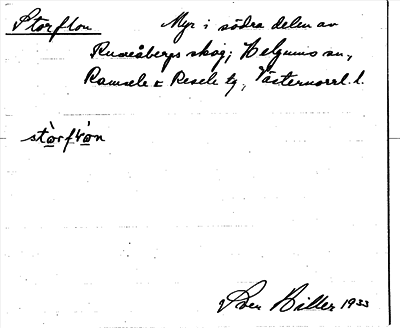 Storflon Myr i södra delen av
Runsåbergs skog; Helgums sn.,
Ramsele & Resele tg., Västernorrl. l.
stòrflo̲n
Sven Hiller 1933